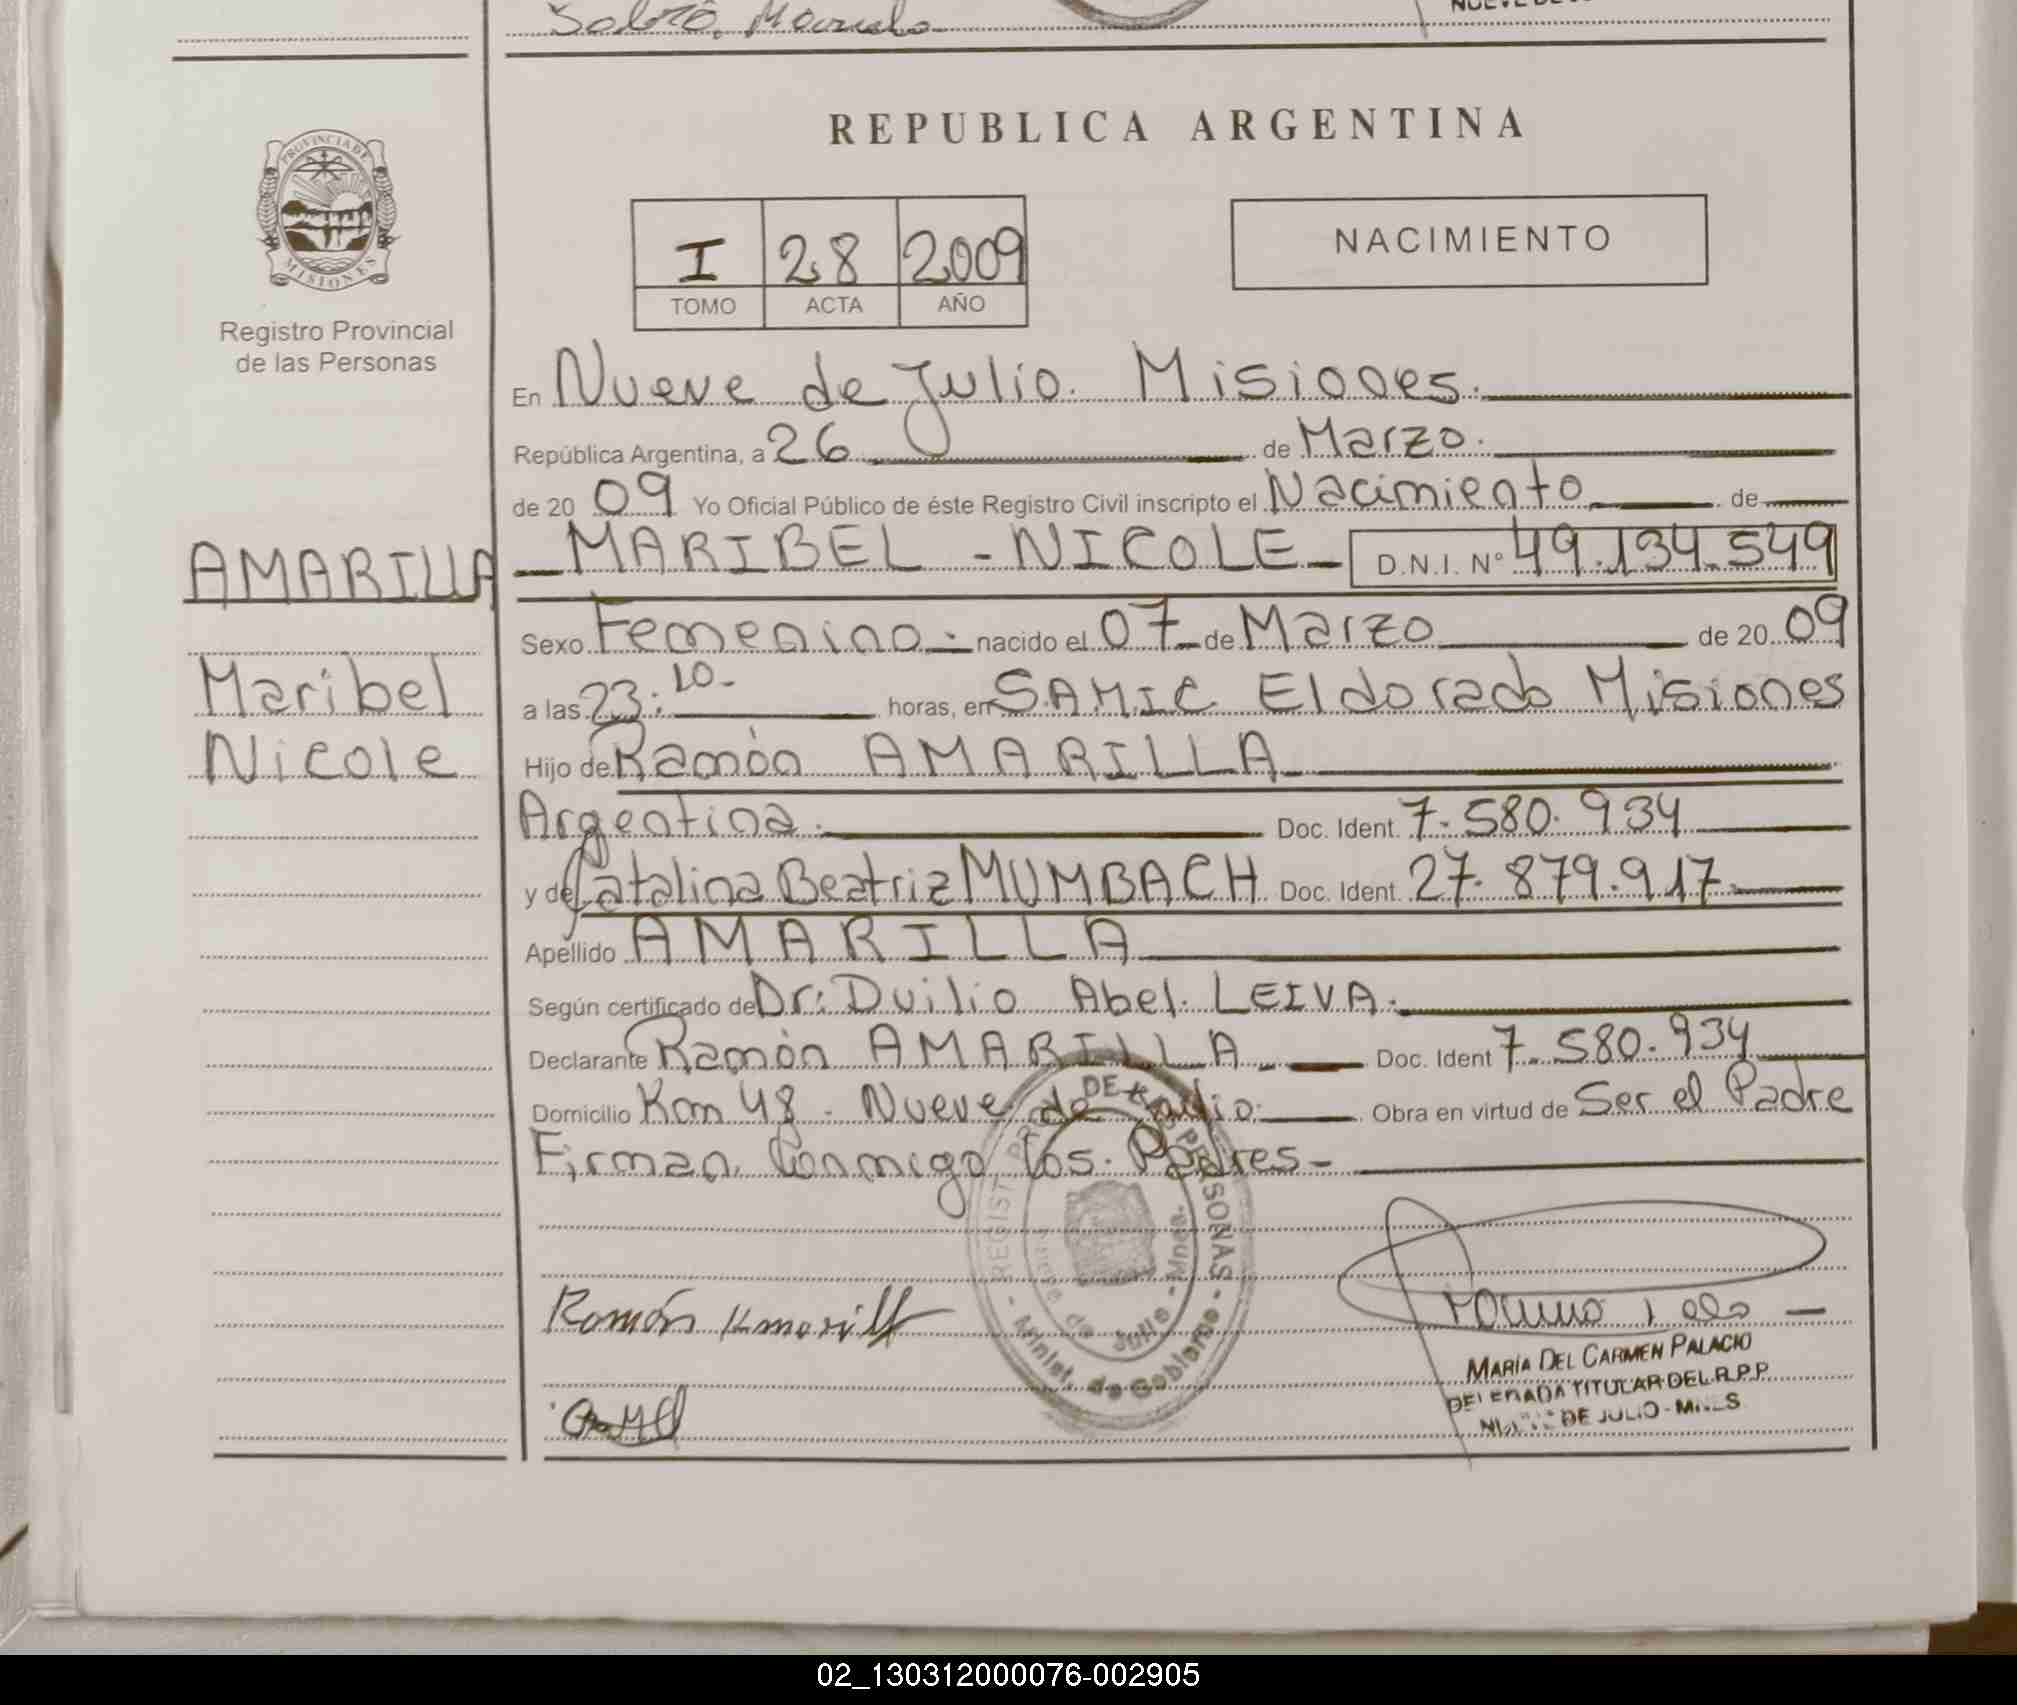 REPUBLICA ARGENTINA
PROVINCIA DE
MISIONES
Registro Provincial
de las Personas
I 28 2009
TOMO ACTA AÑO
NACIMIENTO
En Nueve de Julio. Misiones.
República Argentina, a 26 de Marzo.
de 20 09 Yo Oficial Público de éste Registro Civil inscripto el Nacimiento de
AMARILLA
Maribel
Nicole
MARIBEL - NICOLE - D.N.I. Nº 49.134.549
Sexo Femenino.- nacido el 07 de Marzo de 20 09
a las 23:10.- horas, en SAMIC Eldorado Misiones
Hijo de Ramón AMARILLA
Argentina. Doc. Ident. 7.580.934
y de Catalina Beatriz MUMBACH Doc. Ident. 27.879.917.
Apellido AMARILLA
Según certificado de Dr: Duilio Abel. LEIVA.
Declarante Ramón AMARILLA Doc. Ident 7.580.934
Domicilio Km 48. Nueve de Julio. Obra en virtud de Ser el Padre
Firman Conmigo los Padres-
REGIST. PROV. DE LAS PERSONAS - Minist. de Gobierno -
Nueve de Julio - Mnes.
Ramón Amarilla
MARÍA DEL CARMEN PALACIO
DELEGADA TITULAR DEL R.P.P.
NUEVE DE JULIO - MNES
02_130312000076-002905